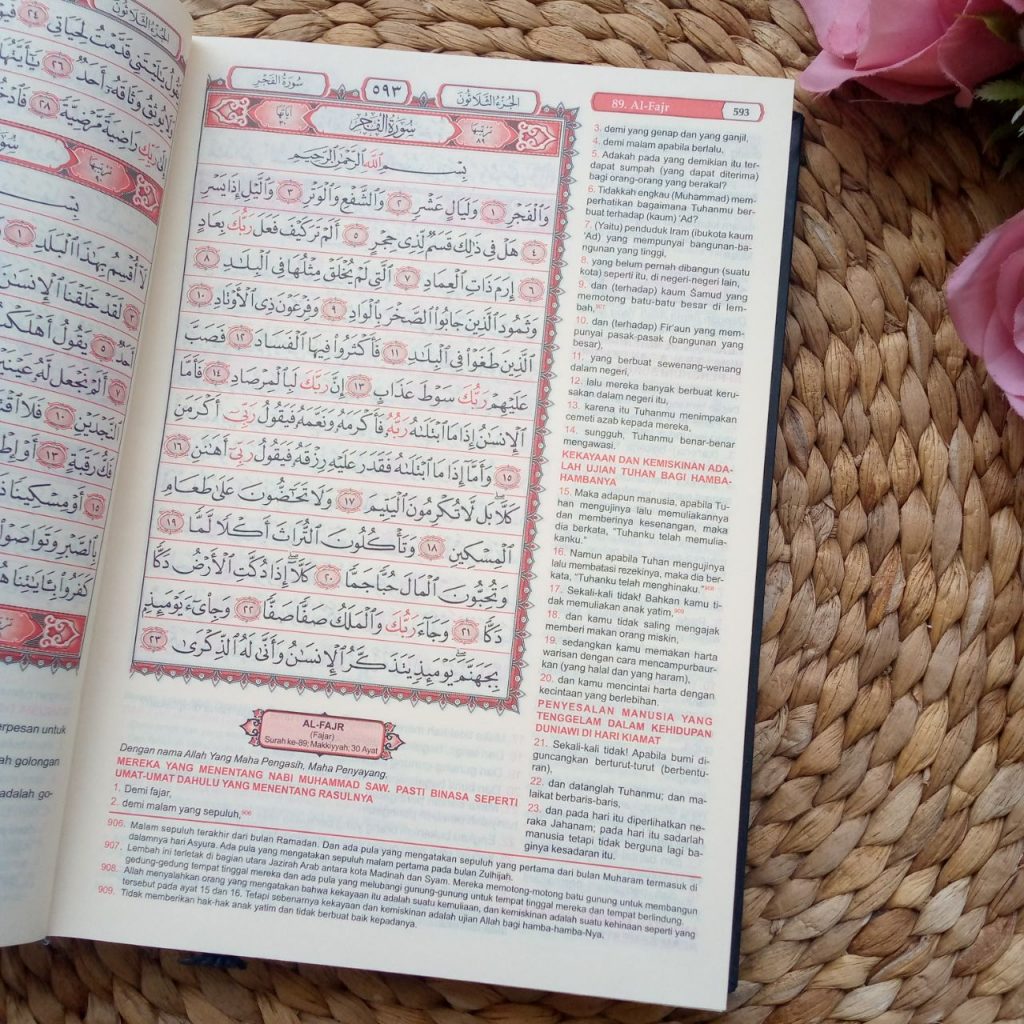 الجزء الثلاثون
يَقُولُ يَٰلَيْتَنِى قَدَّمْتُ لِحَيَاتِى ٢٤
يُوثِقُ وَثَاقَهُۥٓ أَحَدٌ ٢٦ يَٰٓأَيَّتُهَا
رَبِّكِ رَاضِيَةً مَّرْضِيَّةً ٢٨
لَآ أُقْسِمُ بِهَٰذَا ٱلْبَلَدِ ١
لَقَدْ خَلَقْنَا ٱلْإِنسَٰنَ
أَحَدٌ ٥ يَقُولُ أَهْلَكْتُ
٧ أَلَمْ نَجْعَل لَّهُۥ عَيْنَيْنِ
ٱلنَّجْدَيْنِ ١٠ فَلَا ٱقْتَحَمَ
فَكُّ رَقَبَةٍ ١٣ أَوْ إِطْعَٰمٌ
١٥ أَوْ مِسْكِينًا ذَا
بِٱلصَّبْرِ وَتَوَاصَوْا۟
كَفَرُوا۟ بِـَٔايَٰتِنَا هُمْ
erpesan untuk
ah golongan
adalah go-
سورة الفجر
٥٩٣
الجزء الثلاثون
آياتها ٣٠
سورة الفجر
ترتيبها ٨٩
بِسْمِ ٱللَّهِ ٱلرَّحْمَٰنِ ٱلرَّحِيمِ
وَٱلْفَجْرِ ١ وَلَيَالٍ عَشْرٍ ٢ وَٱلشَّفْعِ وَٱلْوَتْرِ ٣ وَٱلَّيْلِ إِذَا يَسْرِ
٤ هَلْ فِى ذَٰلِكَ قَسَمٌ لِّذِى حِجْرٍ ٥ أَلَمْ تَرَ كَيْفَ فَعَلَ رَبُّكَ بِعَادٍ
٦ إِرَمَ ذَاتِ ٱلْعِمَادِ ٧ ٱلَّتِى لَمْ يُخْلَقْ مِثْلُهَا فِى ٱلْبِلَٰدِ ٨
وَثَمُودَ ٱلَّذِينَ جَابُوا۟ ٱلصَّخْرَ بِٱلْوَادِ ٩ وَفِرْعَوْنَ ذِى ٱلْأَوْتَادِ ١٠
ٱلَّذِينَ طَغَوْا۟ فِى ٱلْبِلَٰدِ ١١ فَأَكْثَرُوا۟ فِيهَا ٱلْفَسَادَ ١٢ فَصَبَّ
عَلَيْهِمْ رَبُّكَ سَوْطَ عَذَابٍ ١٣ إِنَّ رَبَّكَ لَبِٱلْمِرْصَادِ ١٤ فَأَمَّا
ٱلْإِنسَٰنُ إِذَا مَا ٱبْتَلَىٰهُ رَبُّهُۥ فَأَكْرَمَهُۥ وَنَعَّمَهُۥ فَيَقُولُ رَبِّىٓ أَكْرَمَنِ
١٥ وَأَمَّآ إِذَا مَا ٱبْتَلَىٰهُ فَقَدَرَ عَلَيْهِ رِزْقَهُۥ فَيَقُولُ رَبِّىٓ أَهَٰنَنِ ١٦
كَلَّا بَل لَّا تُكْرِمُونَ ٱلْيَتِيمَ ١٧ وَلَا تَحَٰٓضُّونَ عَلَىٰ طَعَامِ
ٱلْمِسْكِينِ ١٨ وَتَأْكُلُونَ ٱلتُّرَاثَ أَكْلًا لَّمًّا ١٩
وَتُحِبُّونَ ٱلْمَالَ حُبًّا جَمًّا ٢٠ كَلَّآ إِذَا دُكَّتِ ٱلْأَرْضُ دَكًّا
دَكًّا ٢١ وَجَآءَ رَبُّكَ وَٱلْمَلَكُ صَفًّا صَفًّا ٢٢ وَجِا۟ىٓءَ يَوْمَئِذٍۭ
بِجَهَنَّمَ يَوْمَئِذٍ يَتَذَكَّرُ ٱلْإِنسَٰنُ وَأَنَّىٰ لَهُ ٱلذِّكْرَىٰ ٢٣
AL-FAJR
(Fajar)
Surah ke-89; Makkiyyah; 30 Ayat
Dengan nama Allah Yang Maha Pengasih, Maha Penyayang.
MEREKA YANG MENENTANG NABI MUHAMMAD SAW. PASTI BINASA SEPERTI
UMAT-UMAT DAHULU YANG MENENTANG RASULNYA
1. Demi fajar,
2. demi malam yang sepuluh,⁹⁰⁶
89. Al-Fajr
593
3. demi yang genap dan yang ganjil,
4. demi malam apabila berlalu,
5. Adakah pada yang demikian itu ter-
dapat sumpah (yang dapat diterima)
bagi orang-orang yang berakal?
6. Tidakkah engkau (Muhammad) mem-
perhatikan bagaimana Tuhanmu ber-
buat terhadap (kaum) 'Ad?
7. (Yaitu) penduduk Iram (ibukota kaum
'Ad) yang mempunyai bangunan-ba-
ngunan yang tinggi,
8. yang belum pernah dibangun (suatu
kota) seperti itu, di negeri-negeri lain,
9. dan (terhadap) kaum Šamud yang
memotong batu-batu besar di lem-
bah,⁹⁰⁷
10. dan (terhadap) Fir'aun yang mem-
punyai pasak-pasak (bangunan yang
besar),
11. yang berbuat sewenang-wenang
dalam negeri,
12. lalu mereka banyak berbuat keru-
sakan dalam negeri itu,
13. karena itu Tuhanmu menimpakan
cemeti azab kepada mereka,
14. sungguh, Tuhanmu benar-benar
mengawasi.
KEKAYAAN DAN KEMISKINAN ADA-
LAH UJIAN TUHAN BAGI HAMBA-
HAMBANYA
15. Maka adapun manusia, apabila Tu-
han mengujinya lalu memuliakannya
dan memberinya kesenangan, maka
dia berkata, "Tuhanku telah memulia-
kanku."
16. Namun apabila Tuhan mengujinya
lalu membatasi rezekinya, maka dia ber-
kata, "Tuhanku telah menghinaku."⁹⁰⁸
17. Sekali-kali tidak! Bahkan kamu ti-
dak memuliakan anak yatim,⁹⁰⁹
18. dan kamu tidak saling mengajak
memberi makan orang miskin,
19. sedangkan kamu memakan harta
warisan dengan cara mencampurbaur-
kan (yang halal dan yang haram),
20. dan kamu mencintai harta dengan
kecintaan yang berlebihan.
PENYESALAN MANUSIA YANG
TENGGELAM DALAM KEHIDUPAN
DUNIAWI DI HARI KIAMAT
21. Sekali-kali tidak! Apabila bumi di-
guncangkan berturut-turut (berbentu-
ran),
22. dan datanglah Tuhanmu; dan ma-
laikat berbaris-baris,
23. dan pada hari itu diperlihatkan ne-
raka Jahanam; pada hari itu sadarlah
manusia tetapi tidak berguna lagi ba-
ginya kesadaran itu.
906. Malam sepuluh terakhir dari bulan Ramadan. Dan ada pula yang mengatakan sepuluh yang pertama dari bulan Muharam termasuk di
dalamnya hari Asyura. Ada pula yang mengatakan sepuluh malam pertama pada bulan Zulhijah.
907. Lembah ini terletak di bagian utara Jazirah Arab antara kota Madinah dan Syam. Mereka memotong-motong batu gunung untuk membangun
gedung-gedung tempat tinggal mereka dan ada pula yang melubangi gunung-gunung untuk tempat tinggal mereka dan tempat berlindung.
908. Allah menyalahkan orang yang mengatakan bahwa kekayaan itu adalah suatu kemuliaan, dan kemiskinan adalah suatu kehinaan seperti yang
tersebut pada ayat 15 dan 16. Tetapi sebenarnya kekayaan dan kemiskinan adalah ujian Allah bagi hamba-hamba-Nya,
909. Tidak memberikan hak-hak anak yatim dan tidak berbuat baik kepadanya.